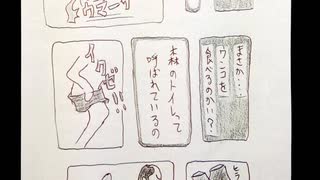 まさか…
ウンコを
食べるのかい？
森のトイレって
呼ばれているの
イクゼ!!